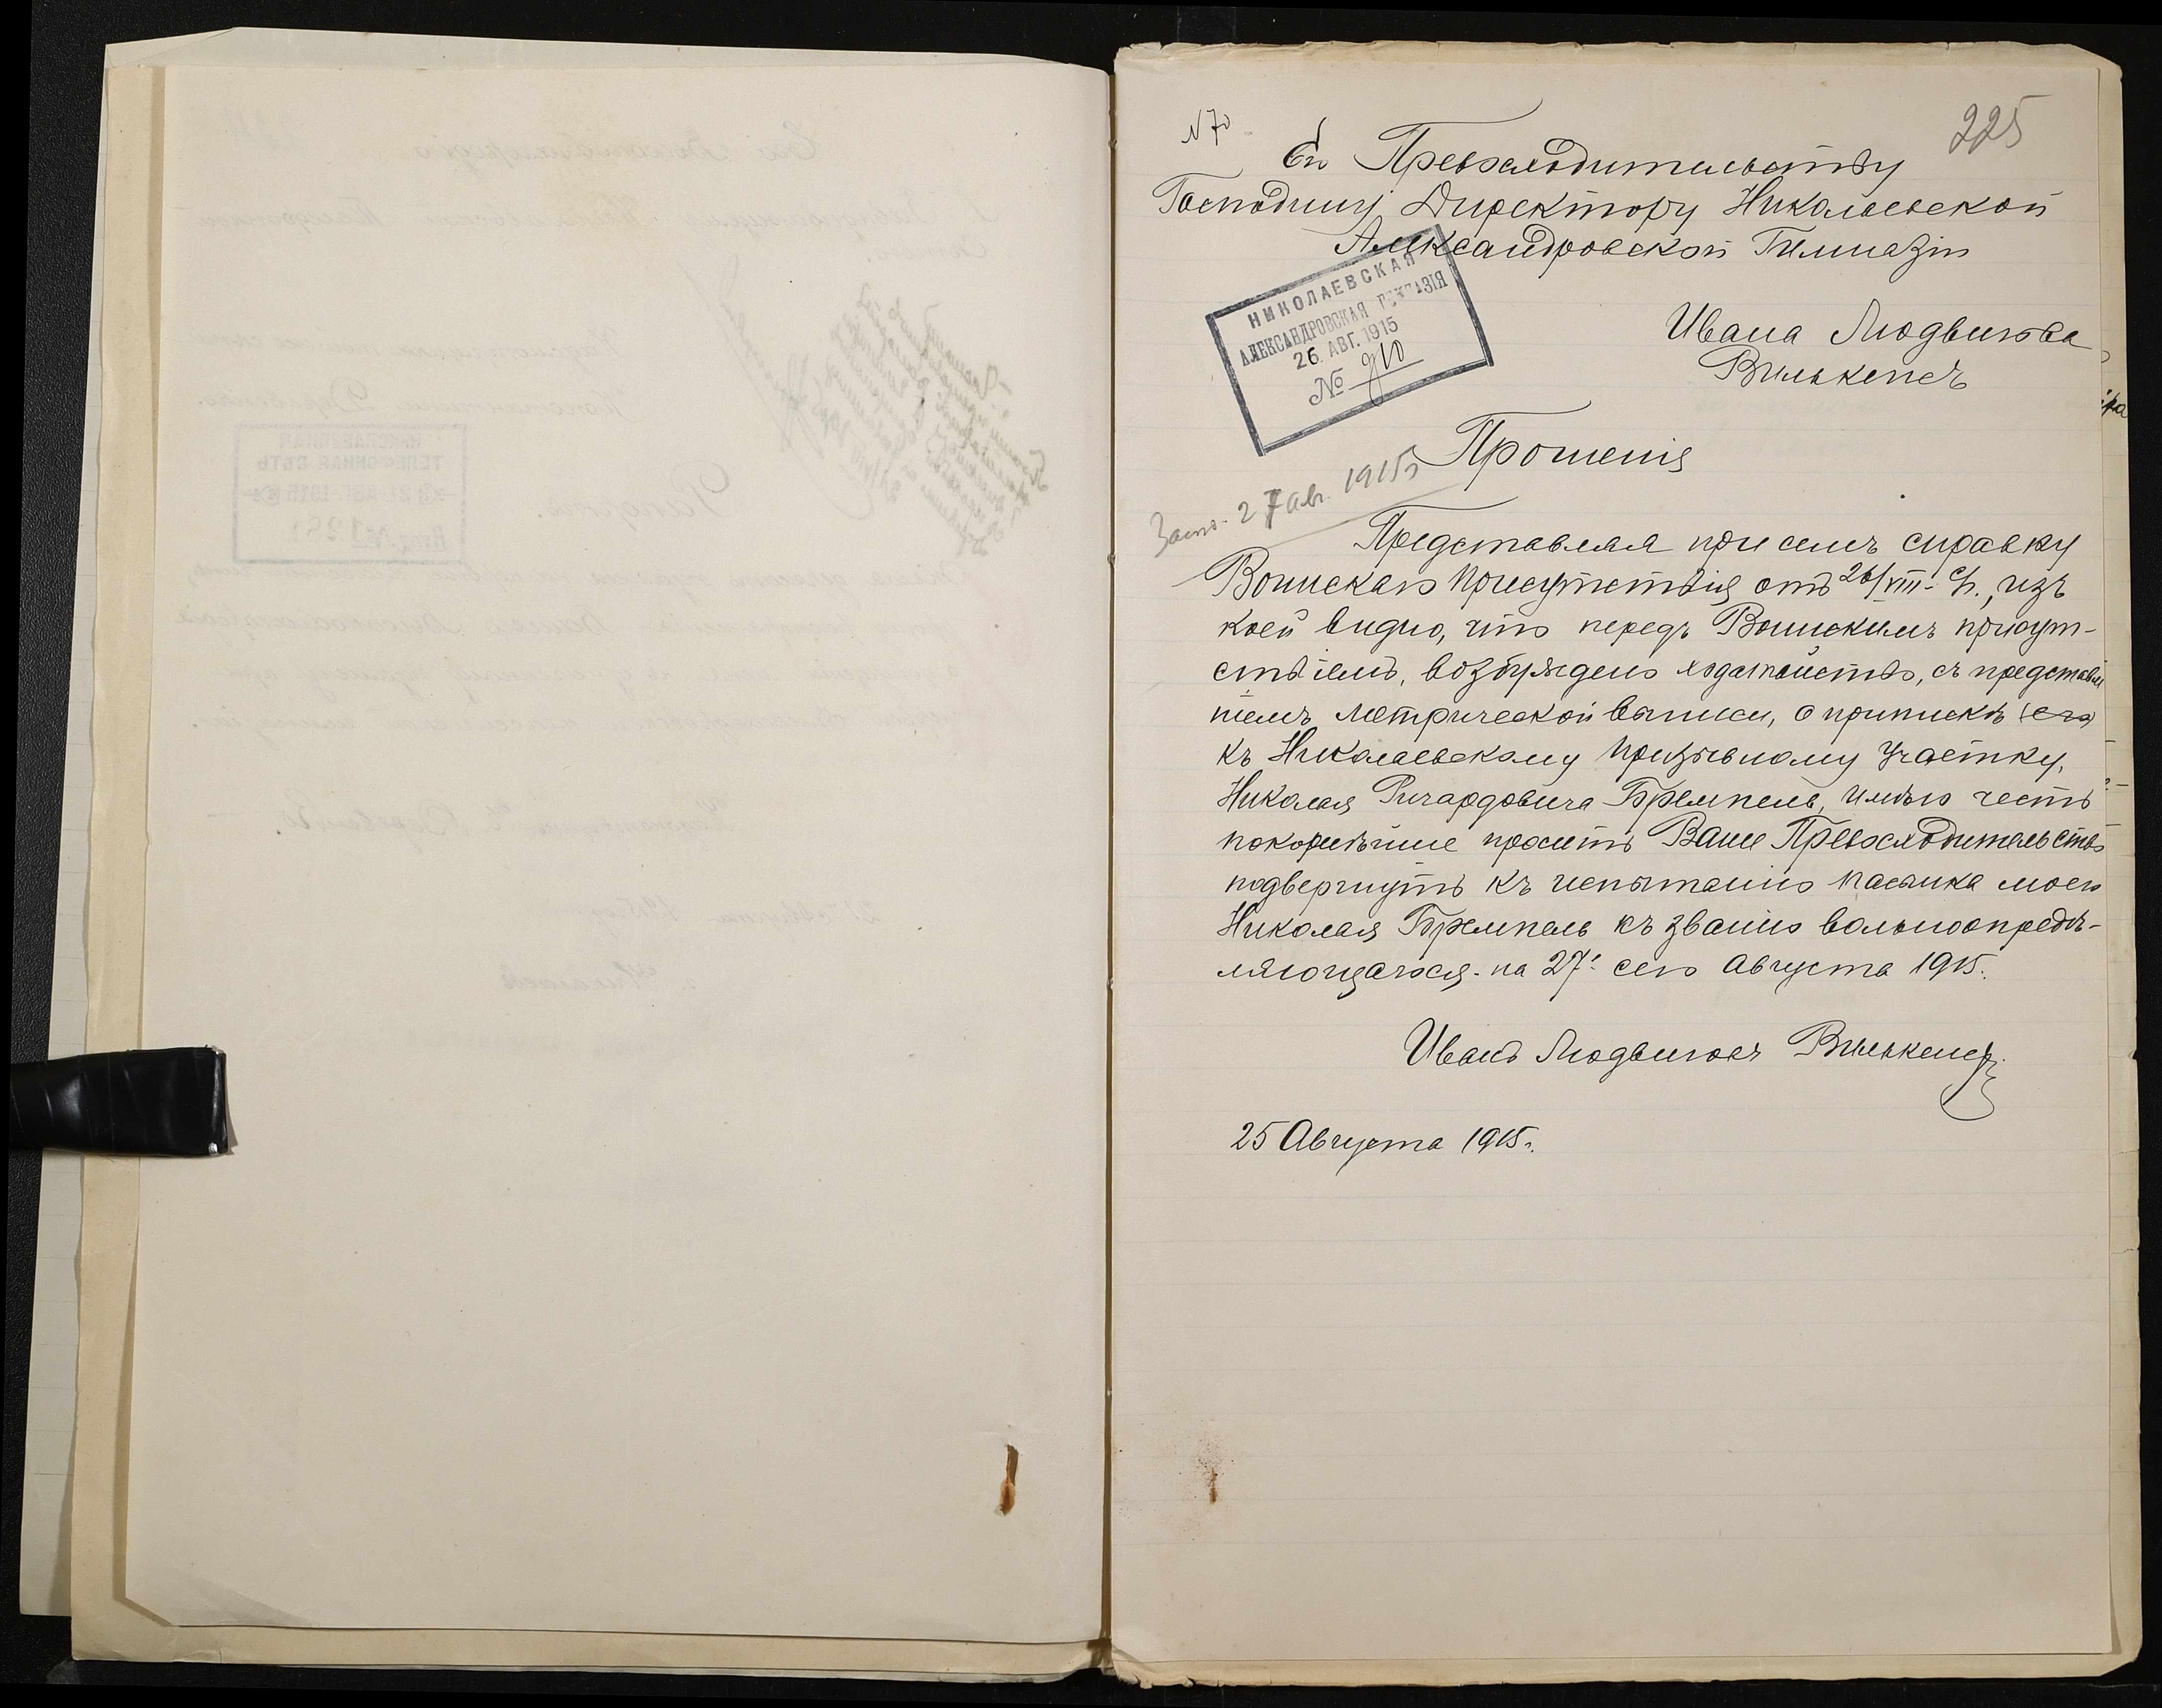 N 70
225
Его Превосходительству
Господину Директору Николаевской
Александровской Гимназіи
НИКОЛАЕВСКАЯ
АЛЕКСАНДРОВСКАЯ ГИМНАЗІЯ
26 АВГ. 1915
№ 910
Ивана Людвигова
Вилькенсъ
Прошенія
27 авг. 1915г
Представляя при семъ справку
Воинскаго Присутствія отъ 26/VIII с/г., изъ
коей видно, что передъ Воинскимъ присут-
ствіемъ, возбуждено ходатайство, съ представле
ніемъ метрической выписи, о припискѣ его
къ Николаевскому призывному участку,
Николая Ричардовича Бремпель, имѣю честь
покорнѣйше просить Ваше Превосходительство
подвергнуть къ испытанію пасынка моего
Николая Бремпель къ званію вольноопредѣ-
ляющагося на 27: сего Августа 1915.
Иванъ Людвиговъ Вилькенсъ
25 Августа 1915г.